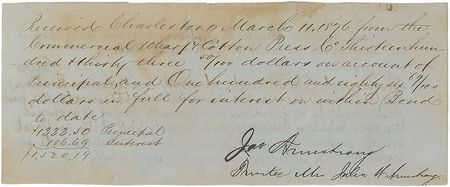 Received Charleston March 11, 1876 from the
Commercial Wharf & Cotton Press Co Thirteen hun
dred & thirty three 50/100 dollars on account of
Principal, and One hundred and eighty six 69/100
dollars in full for interest on within Bond
to date
$1333.50 Principal
186.69 Interest
$1,520.19
Jas Armstrong
Trustee Mrs Julia W Armstrong.